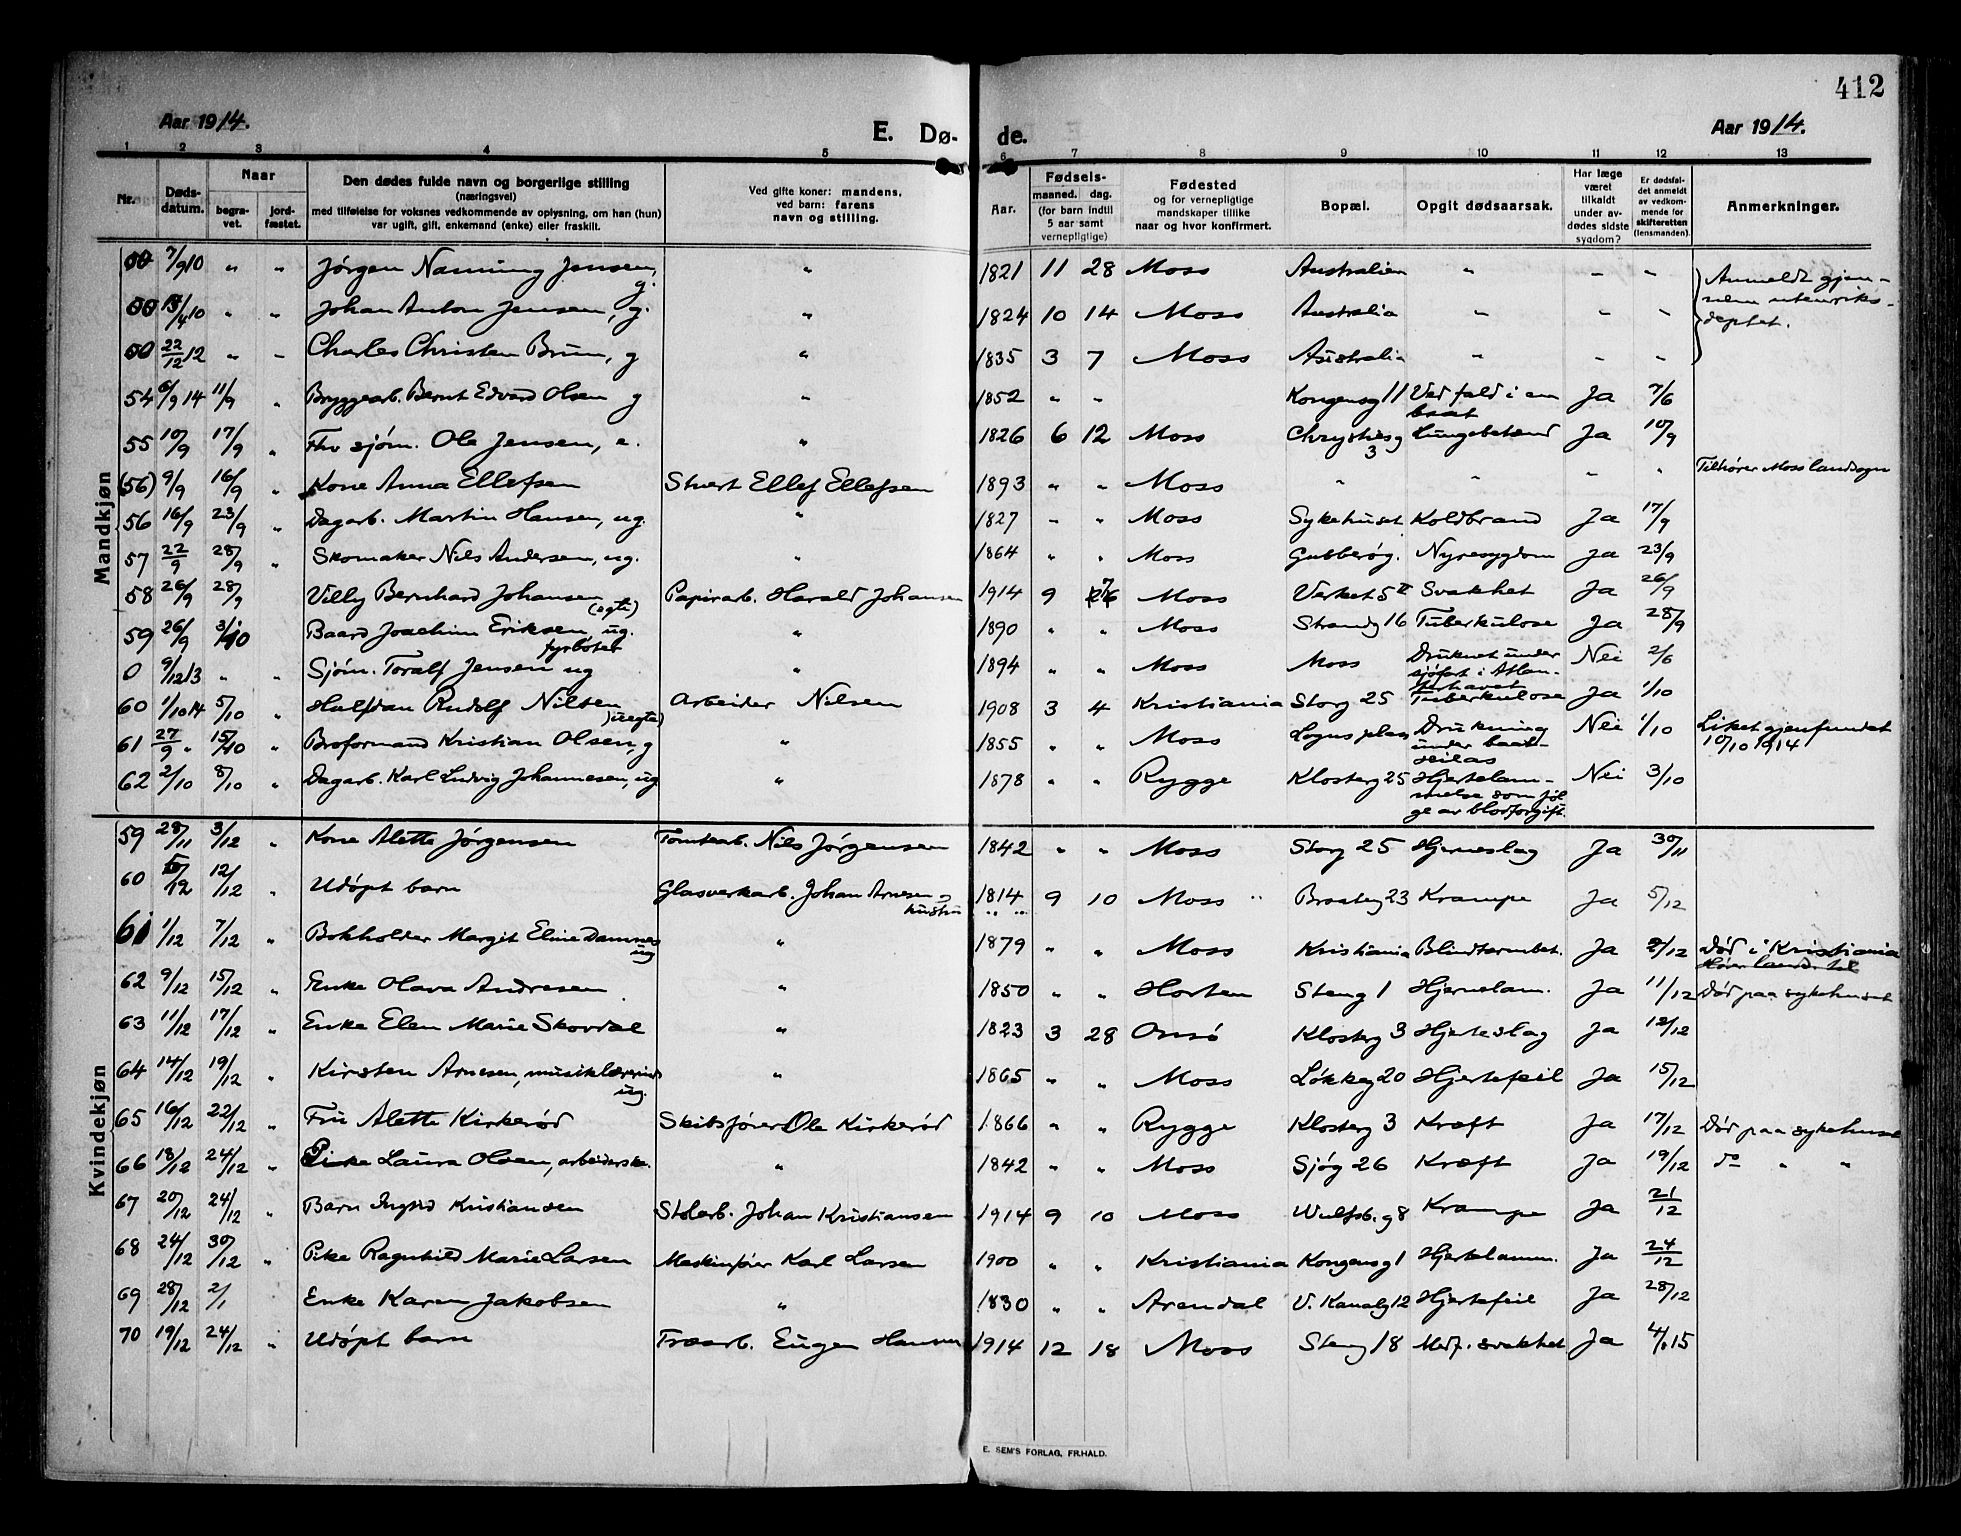 412
Aar 1914. E. Dø- de. Aar 1914.
1 2 3 4 5 6 7 8 9 10 11 12 13
Nr. Døds-datum. Naar begra-vet. jord-fæstet. Den dødes fulde navn og borgerlige stilling (næringsvei) med tilføielse for voksnes vedkommende av oplysning, om han (hun) var ugift, gift, enkemand (enke) eller fraskilt. Ved gifte koner: mandens, ved barn: farens navn og stilling. Aar. Fødsels- maaned. dag. (for barn indtil 5 aar samt vernepligtige) Fødested og for vernepligtige mandskaper tillike naar og hvor konfirmert. Bopæl. Opgit dødsaarsak. Har læge været tilkaldt under av-dødes sidste sygdom? Er dødsfal-det anmeldt av vedkom-mende for skifteretten (lensmanden). Anmerkninger.
Mandkjøn
7/9 10 " " Jørgen Nanning Jensen, g. " 1821 11 28 Moss Australien " - " Anmeldt gjen-
13/4 10 " " Johan Anton Jensen, g. " 1824 10 14 Moss Australia " - " nem utenriks-
22/12 12 " - Charles Christen Bruun, g " 1835 3 7 Moss Australia " - - deptet.
54 6/9 14 11/9 " Bryggearb. Bernt Edvard Olsen g " 1852 " " Kongensg 11 Ved fald i en baat Ja 7/6
55 10/9 17/9 " Fhv sjøm. Ole Jensen, e. " 1826 6 12 Moss Chrystiesg 3 Lungebetænd Ja 10/9
(56) 9/9 16/9 " Kone Anna Ellefsen Stuert Ellef Ellefsen 1893 " " Moss " " " " Tilhører Moss landsogn
56 16/9 23/9 " Dagarb. Martin Hansen, ug. " 1827 - " Moss Sykehuset Koldbrand Ja 17/9
57 22/9 28/9 " Skomaker Nils Andersen, ug. " 1864 " " Moss Gubberøg. Nyresygdom Ja 23/9
58 26/9 28/9 Villy Bernhard Johansen (egte) Papirarb. Harald Johansen 1914 9 7 Moss Verket 5 II Svakhet Ja 26/9
59 26/9 3/10 Baard Joachim Eriksen ug. fyrbøter " 1890 " " Moss Strandg 16 Tuberkulose Ja 28/9
0 9/12 13 " " Sjøm. Toralf Jensen ug " 1894 " " Moss Moss Druknet under sjøfart i Atlan-terhavet Nei 2/6
60 1/10 14 5/10 " Halfdan Rudolf Nilsen (uegte) Arbeider Nilsen 1908 3 4 Kristiania Storg 25 Tuberkulose Ja 1/10
61 27/9 " 15/10 " Broformand Kristian Olsen, g " 1855 " " Moss Logns plass Drukning under baat-seilas Nei 1/10 Liket gjenfundet 10/10 1914
62 2/10 8/10 " Dagarb. Karl Ludvig Johannesen, ug " 1878 " " Rygge Klosterg 25 Hjertelam-melse som føl ge av blodforgift. Nei 3/10
Kvindekjøn
59 28/11 3/12 " Kone Alette Jørgensen Tomtearb. Nils Jørgensen 1842 " " Moss Storg 25 Hjerneslag Ja 30/11
60 5/12 12/12 " Udøpt barn Glasverkarb. Johan Arnesen og hustru 1814 9 10 Moss " Braateg 23 Krampe Ja 5/12
61 1/12 7/12 " Bokholder Margit Eline Damnes ug " 1879 " " Moss Kristiania Blindtarmbet. Ja 2/12 Død i Kristiania
62 9/12 15/12 " Enke Olava Andresen " 1850 " " Horten Steng 1 Hjernelam. Ja 11/12 Død paa sykehuset
63 11/12 17/12 " Enke Elen Marie Skovdal " 1823 3 28 Onsø Klosterg 3 Hjerteslag Ja 12/12
64 14/12 19/12 " Kirsten Arnesen, musiklærerinde ug. " 1865 " " Moss Løkkeg 20 Hjertefeil Ja 15/12
65 16/12 22/12 " Fru Alette Kirkerød Skibsfører Ole Kirkerød 1866 " " Rygge Klosterg 3 Kræft Ja 17/12 Død paa sykehuset
66 18/12 24/12 " Pike Laura Olsen, arbeiderske. " 1842 " " Moss Sjøg 26 Kræft Ja 19/12 do " "
67 20/12 24/12 " Barn Ingrid Kristiansen Stolarb. Johan Kristiansen 1914 9 10 Moss Wulfsb.g 8 Krampe Ja 21/12
68 24/12 30/12 " Pike Ragnhild Marie Larsen Maskinfører Karl Larsen 1900 " " Kristiania Kongensg 1 Hjertelamm. Ja 24/12
69 28/12 2/1 Enke Karen Jakobsen " 1830 " " Arendal V. Kanalg 12 Hjertefeil Ja 28/12
70 19/12 24/12 " Udøpt barn Træarb. Eugen Hansen 1914 12 18 Moss Steng 18 Medf. svakhet Ja 4/1 15
E. SEM'S FORLAG, FR.HALD.